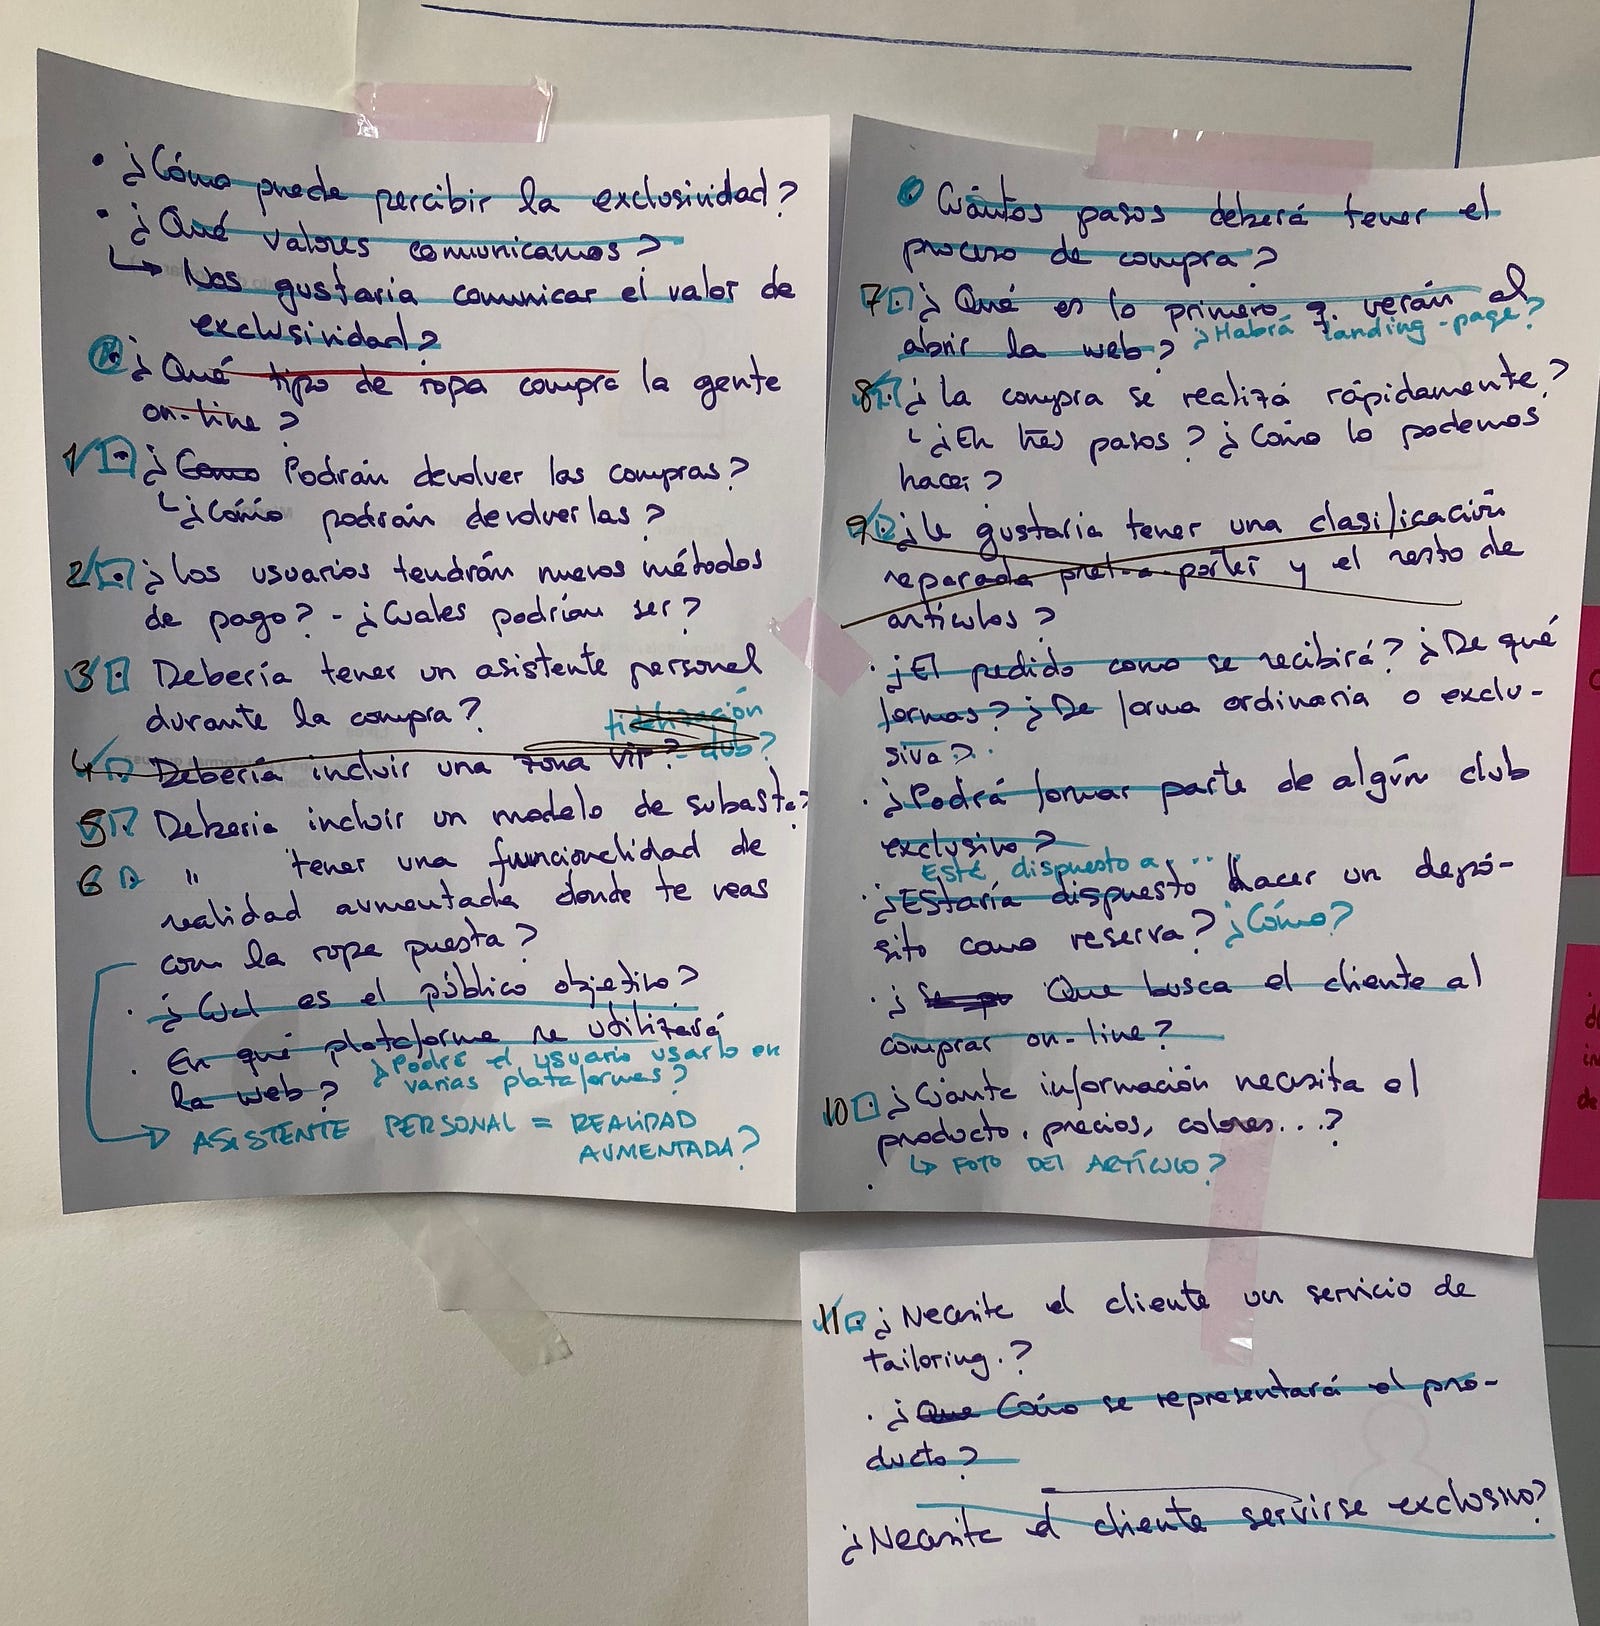 • ¿Cómo puede percibir la exclusividad?
• ¿Qué valores comunicamos?
↳ Nos gustaría comunicar el valor de
exclusividad?
¿Qué tipo de ropa compra la gente
on-line?
1 ¿Como Podrán devolver las compras?
↳ ¿Cómo podrán devolverlas?
2 ¿los usuarios tendrán nuevos métodos
de pago? - ¿Cuales podrían ser?
3 Debería tener un asistente personal
durante la compra?
fidelización
4 Debería incluir una zona vip? - club?
5 Deberia incluir un modelo de subasta?
6 " tener una funcionalidad de
realidad aumentada donde te veas
con la ropa puesta?
· ¿Cual es el público objetivo?
· En qué plataforma se utilizará
¿Podrá el usuario usarlo en
la web? varias plataformas?
→ ASISTENTE PERSONAL = REALIDAD
AUMENTADA?
Cuántos pasos deberá tener el
proceso de compra?
7 ¿Qué es lo primero q. verán al
abrir la web? ¿Habrá landing-page?
8 ¿la compra se realizá rápidamente?
↳ ¿En tres pasos? ¿Cómo lo podemos
hacer?
9 ¿le gustaria tener una clasificación
separada pret-a-porter y el resto de
artículos?
· ¿El pedido como se recibirá? ¿De qué
formas? ¿De forma ordinaria o exclu-
siva?
· ¿Podrá formar parte de algún club
exclusivo?
Esté dispuesto a, ...
· ¿EStaría dispuesto hacer un depó-
sito como reserva? ¿Cómo?
· ¿ Que busca el cliente al
comprar on-line?
10 ¿Cuánta información necesita el
producto, precios, colores...?
↳ FOTO DEL ARTÍCULO?
11 ¿Necesita el cliente un servicio de
tailoring.?
· ¿Que Cómo se representará el pro-
ducto?
¿Necesita el cliente servirse exclusivo?